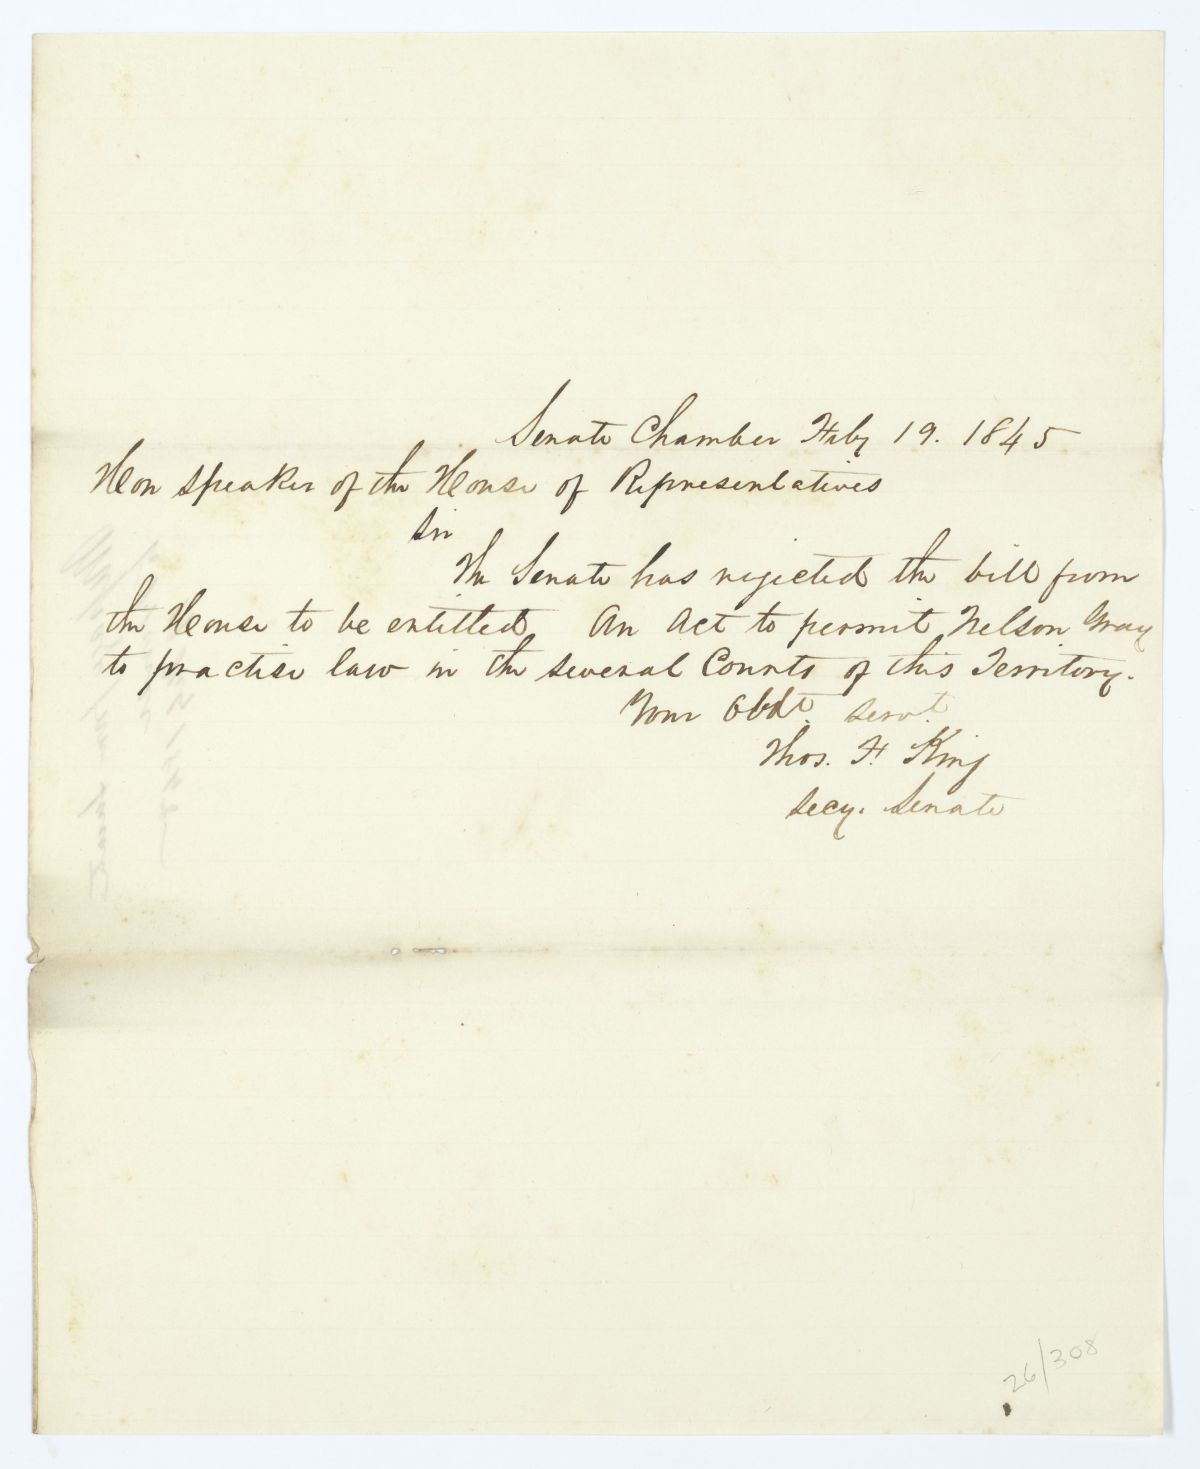 Senate Chamber Feby 19. 1845
Hon Speaker of the House of Representatives
Sir
The Senate has rejected the bill from
the House to be entitled An Act to permit Nelson Gray
to practise law in the several Courts of this Territory.
Your Obdt. Servt.
Thos. F. King
Secy. Senate
26/308